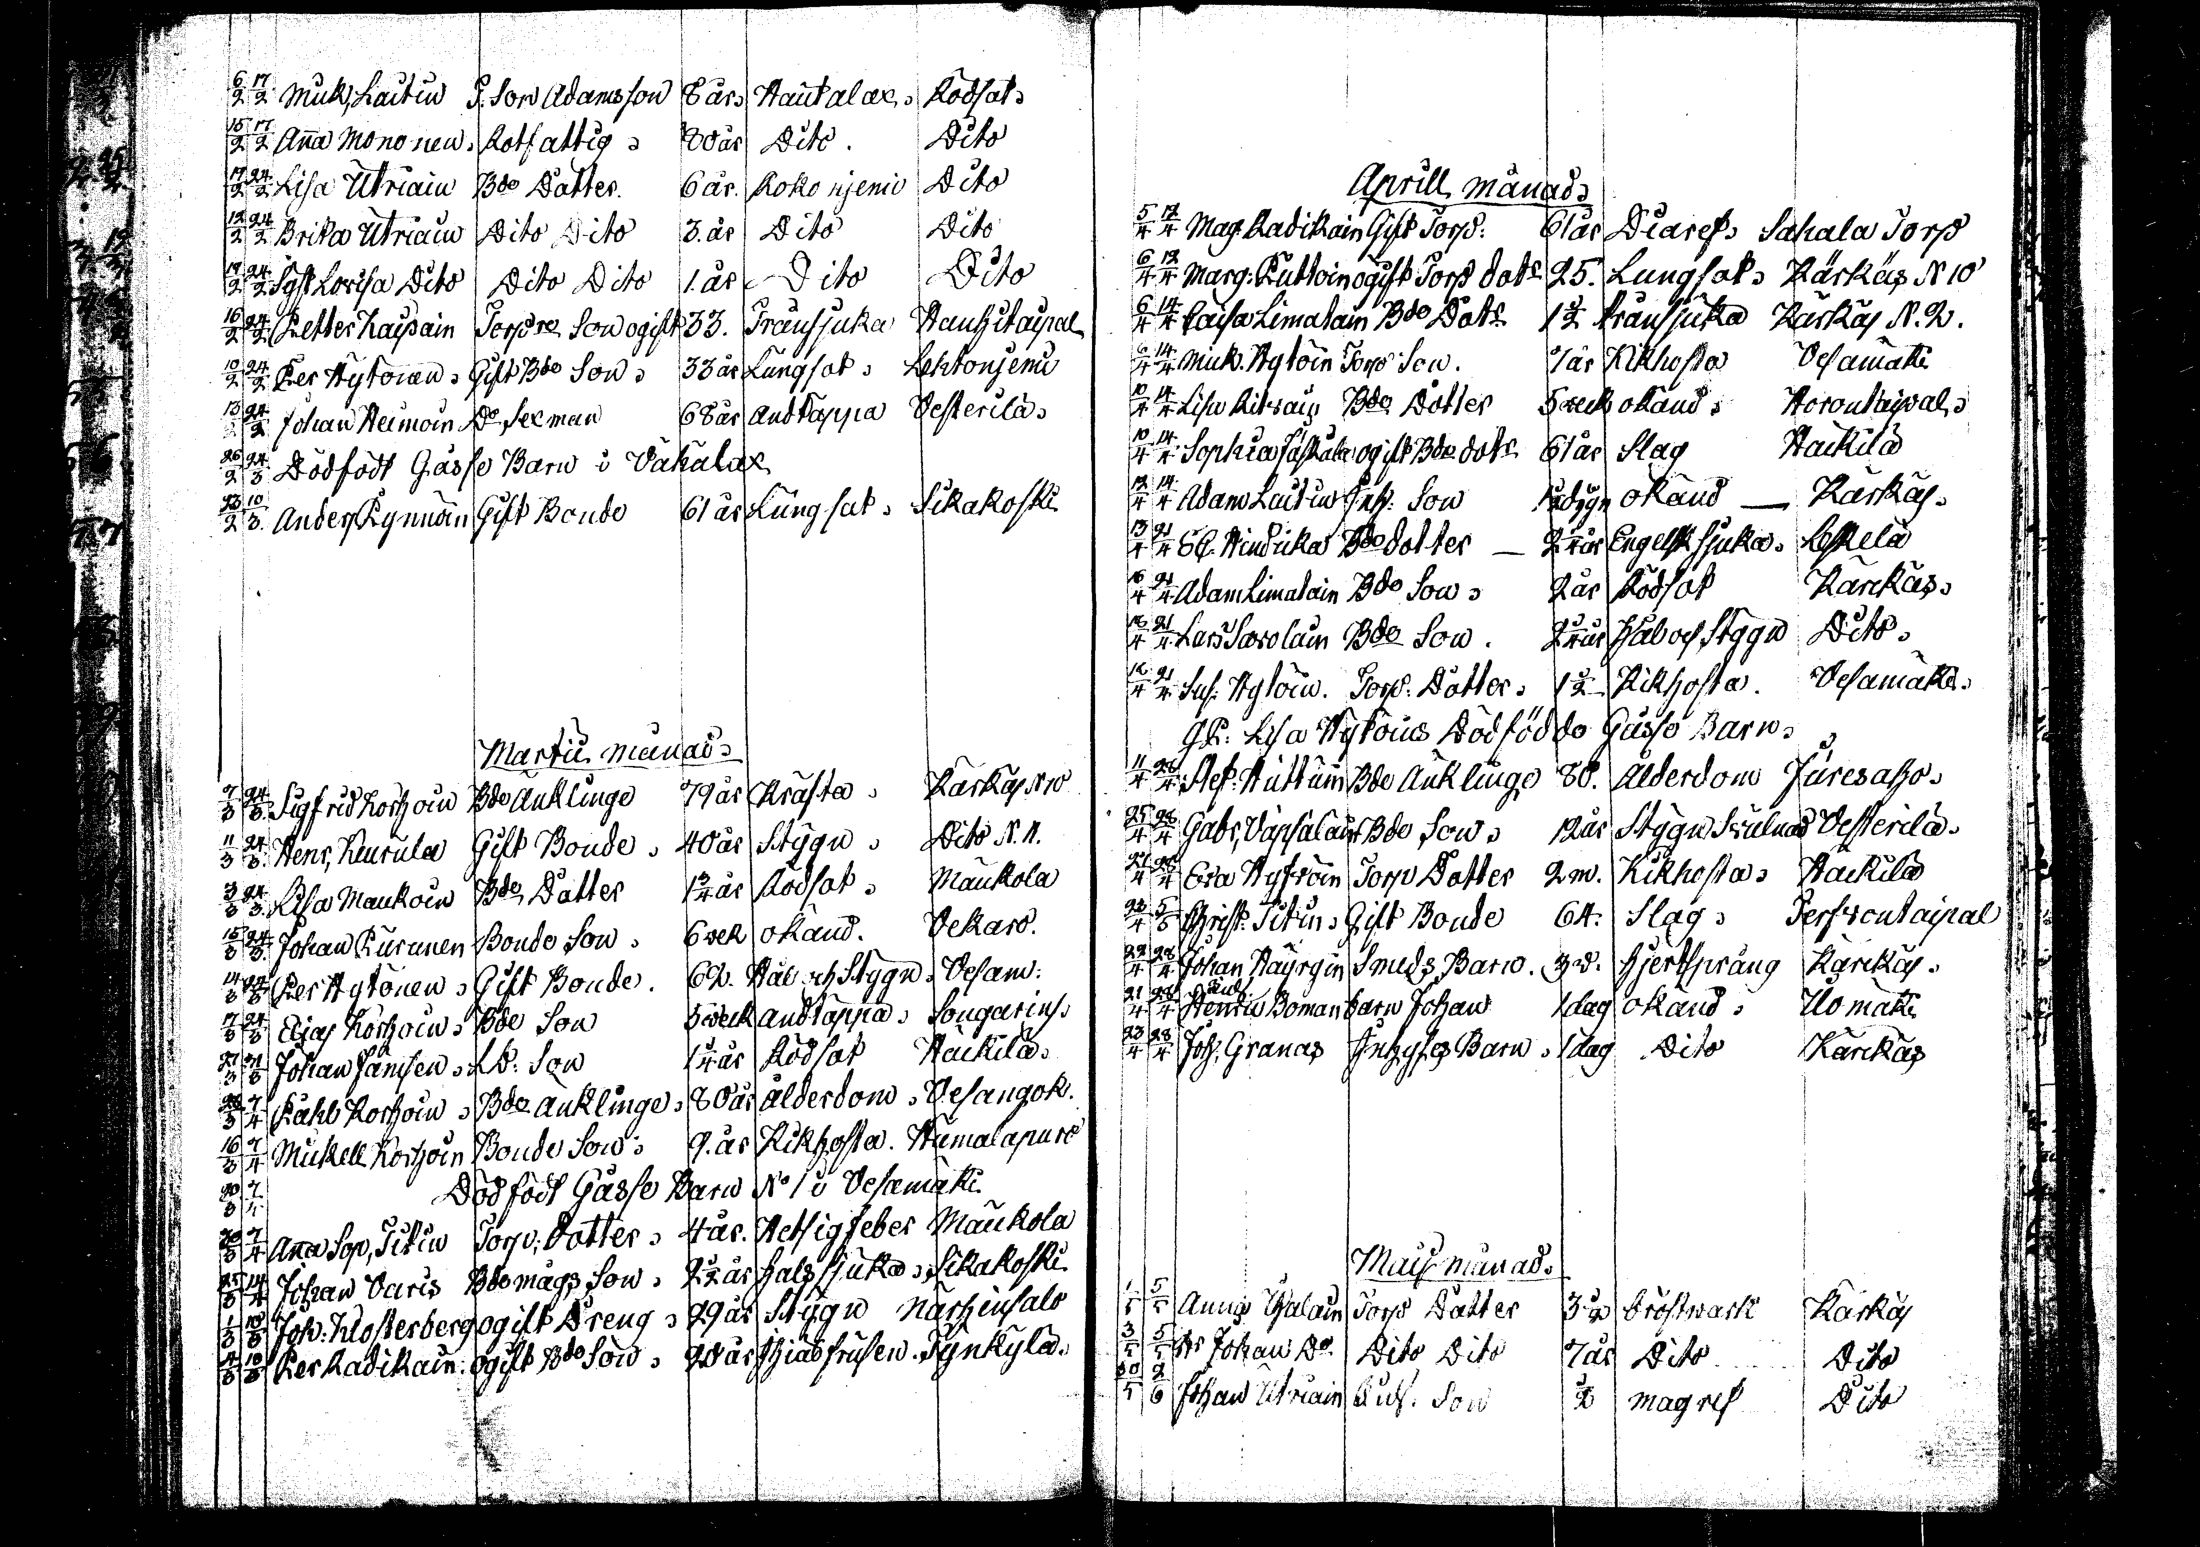 6/2 17/2 Mick, Laitin S. Son Adamsson 8 år Hautalax, Rödsot
15/2 17/2 Aña Mononen, Rotfattig 80 år Dito. Dito
17/2 24/2 Lisa Utriain Bde Dotter. 6 år. Kokonjemi Dito
12/2 24/2 Brita Utriain Dito Dito 3. år Dito Dito
19/2 24/2 Lovisa Dito Dito Dito 1. år Dito Dito
16/2 24/2 Petter Kaipain Torpre Son ogift 33. Trånsjuka Hanhitaipal
10/2 24/2 Per Hytönen, Gift Bde Son, 33 år Lungsot, Lehtonjemi
13/2 24/2 Johan Heimoin Do Sexman 68 år andtäppa Vesterilä,
26/2 24/3 Dödfödt Gåsse Barn i Vakalax
23/2 10/3 Anders Pynnöin Gift Bonde 61 år Lungsot, Sikakoski
Martii månad,
7/3 24/3 Sigfrid Korhoin Bde Änklinge 79 år Kräfta, Kärkäs N 10
11/3 24/3 Henr, Keurula Gift Bonde, 40 år Stygn, Dito N. 11.
3/3 24/3 Lisa Maukoin Bde Dotter 1 3/4 år Rödsot, Maukola
15/3 24/3 Johan Puranen Bonde Son, 6 vek okänd. Vekaro.
14/3 24/3 Per Hytönen, Gift Bonde. 62. Hål och Stygn, Vesam:
17/3 24/3 Elias Korhoin, Bde Son 5 veck andtäppa, Songarins,
27/3 31/3 Johan Jämsen, Ld: Son 1 1/4 år Rödsot Häckilä,
7/4 Påhl Korhoin, Bde Änklinge, 80 år ålderdom, Vesangok.
16/3 7/4 Mickell Korhoin Bonde Son, 9. år Kikhosta. Humalapuro
Dödfödt Gåsse Barn No 1 i Vesamäki
7/4 Aña Sop, Titin Torp: Dotter, 4 år. Hetsig feber Maukola
25/3 14/4 Johan Varis Bde mågs Son, 2 1/2 år halssjuka, Sikakoski
1/3 10/3 Joh: Klosterberg ogift Dreng, 29 år Stygn Närhinsalo
4/3 10/3 Per Radikain: ogift Bde Son, 20 år Ihiälfrusen. Tynkylä.
Aprill månad,
5/4 12/4 Mag: Radikain Gift Torp: 61 år Diaref, Sahala Torp
6/4 12/4 Marg: Puttoin ogift Torp dotr 25. Lungsot, Kärkäs N 10
6/4 14/4 Caisa Limatain Bde Dotr 1 1/2 trånsjuka Kärkäs N. 2.
6/4 14/4 Mick. Hytöin Torp Son. 7 år Kikhosta Vesamäki
10/4 14/4 Lisa Bde Dotter 5 veck okänd, Horontaipal,
10/4 14/4 Sophia ogift Bde dotr 61 år Slag Häckilä
12/4 14/4 Adam Laitin Inh: Son okänd — Kärkäs.
13/4 21/4 Hindrika Bde dotter — 2 1/4 år Engelsk sjuka, Leskelä
16/4 21/4 Adam Limatain Bde Son, 2 år Rödsot Kärckäs,
16/4 21/4 Lars Savolain Bde Son. 2 1/4 år Hål och Stygn Dito,
16/4 21/4 Sus: Hytöin. Torp: Dotter, 1 1/2 Kikhosta. Vesamäki.
Lisa Hytöins Dödfödde Gåsse Barn,
11/4 28/4 Stef: Huttuin Bde Änklinge 80. Ålderdom Juresaho,
25/4 28/4 Gabr, Vapsalain Bde Son, 12 år Stygn Svulnad Vesterilä.
27/4 28/4 Eva Hytöin Torp Dotter 2 m. Kikhosta, Häckilä
23/4 5/5 Christ: Titin, Gift Bonde 64. Slag,
22/4 28/4 Johan Häyrgin Smeds Barn. 3 v. Hjertsprång Kärckäs.
21/4 28/4 Henrik Boman barn Johan 1 dag okänd, Uomäki
23/4 28/4 Joh, Granas Inhyses Barn, 1 dag Dito Kärckäs
Maij månad,
1/5 5/5 Anna Torp Dotter Bröstwärk Kärkäs
3/5 5/5 Johan Do Dito Dito 7 år Dito Dito
30/5 2/6 Johan Utriain Son 1/2 magref Dito